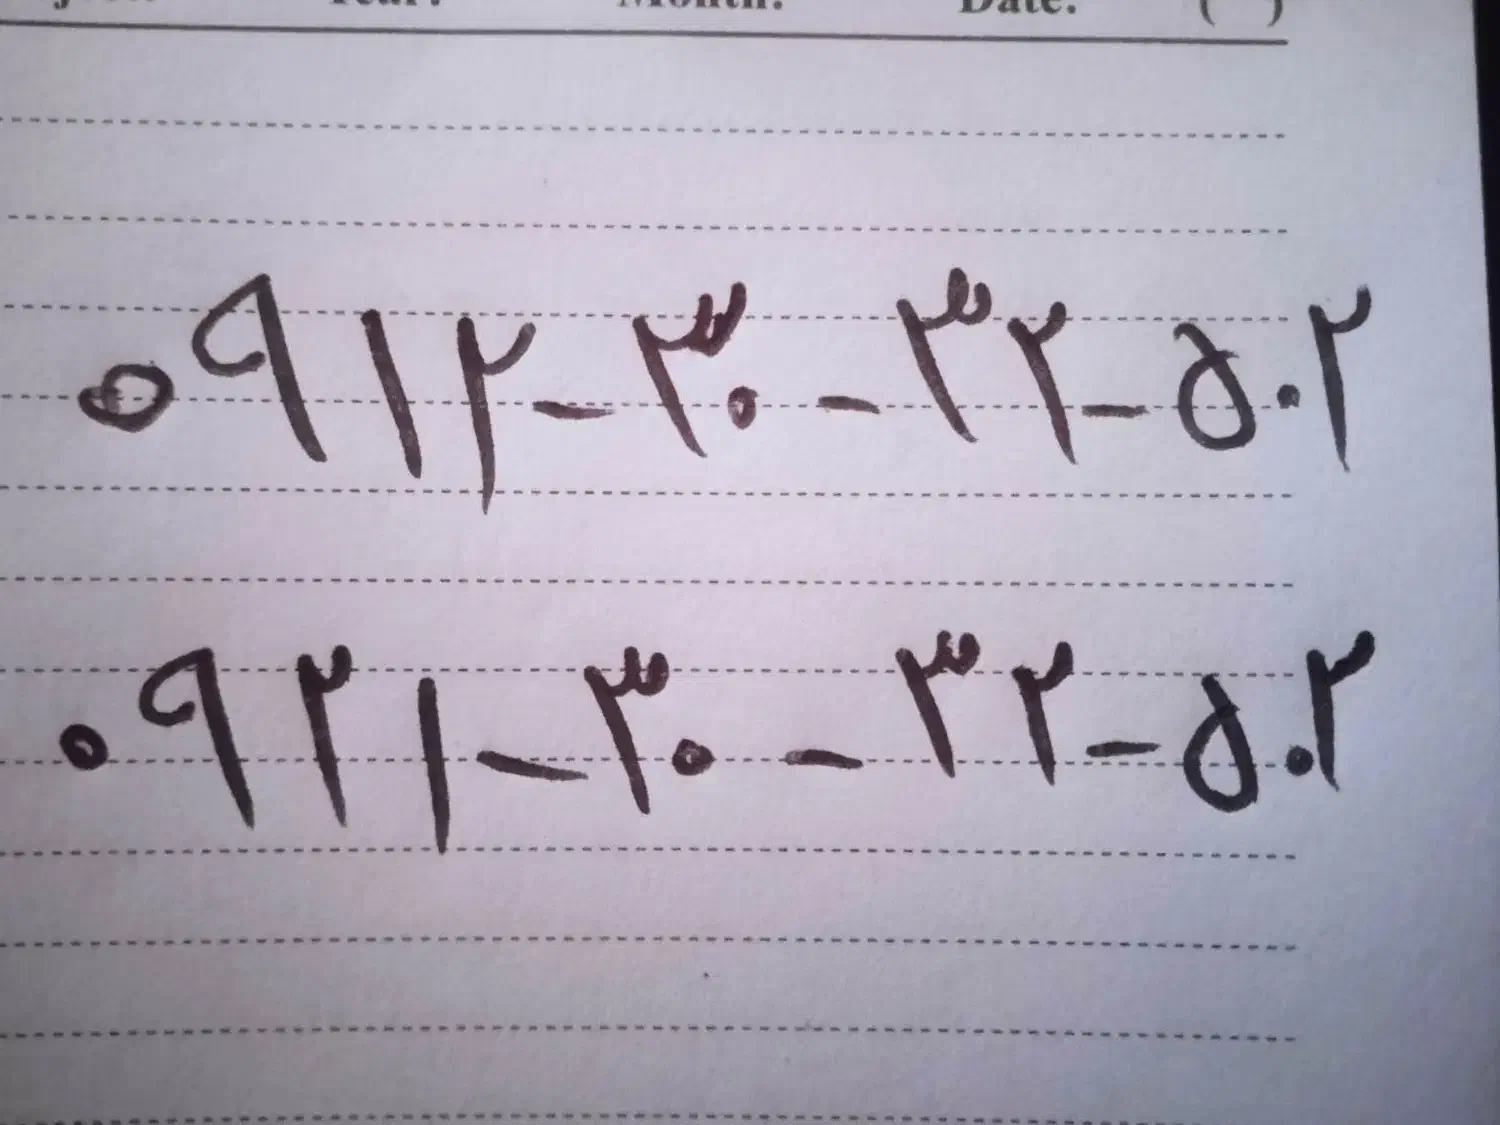 Year: Month: Date: ( )
۰۹۱۲-۳۰-۳۲-۵۰۲
۰۹۲۱-۳۰-۳۲-۵۰۲